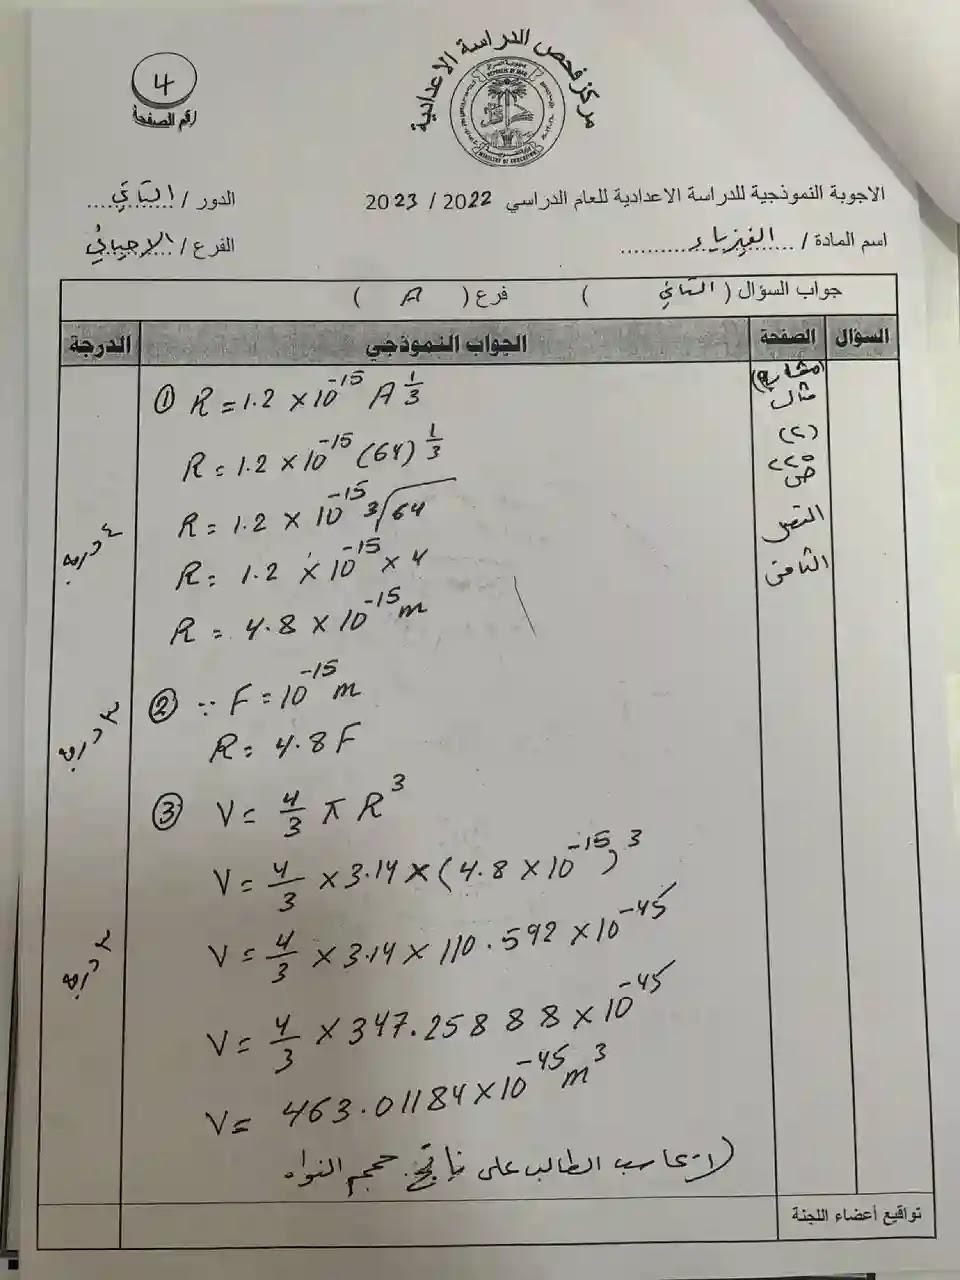 مركز فحص الدراسة الاعدادية
جمهورية العراق
REPUBLIC OF IRAQ
MINISTRY OF EDUCATION
4
رقم الصفحة
الاجوبة النموذجية للدراسة الاعدادية للعام الدراسي 2022 / 2023
الدور / الثاني
اسم المادة / الفيزياء
الفرع / الاحيائي
جواب السؤال ( الثاني ) فرع ( A )
السؤال الصفحة الجواب النموذجي الدرجة
(مشابه)
مثال
(٢)
ص ٢٢٥
الفصل
الثامن
① R = 1.2 × 10^-15 A^1/3
R = 1.2 × 10^-15 (64)^1/3
R = 1.2 × 10^-15 ∛64
R = 1.2 × 10^-15 × 4
R = 4.8 × 10^-15 m
٤ درجة
② ∵ F = 10^-15 m
R = 4.8 F
٣ درجة
③ V = 4/3 π R^3
V = 4/3 × 3.14 × (4.8 × 10^-15)^3
V = 4/3 × 3.14 × 110.592 × 10^-45
V = 4/3 × 347.25888 × 10^-45
V = 463.01184 × 10^-45 m^3
٣ درجة
(لا يحاسب الطالب على ناتج حجم النواه
تواقيع أعضاء اللجنة